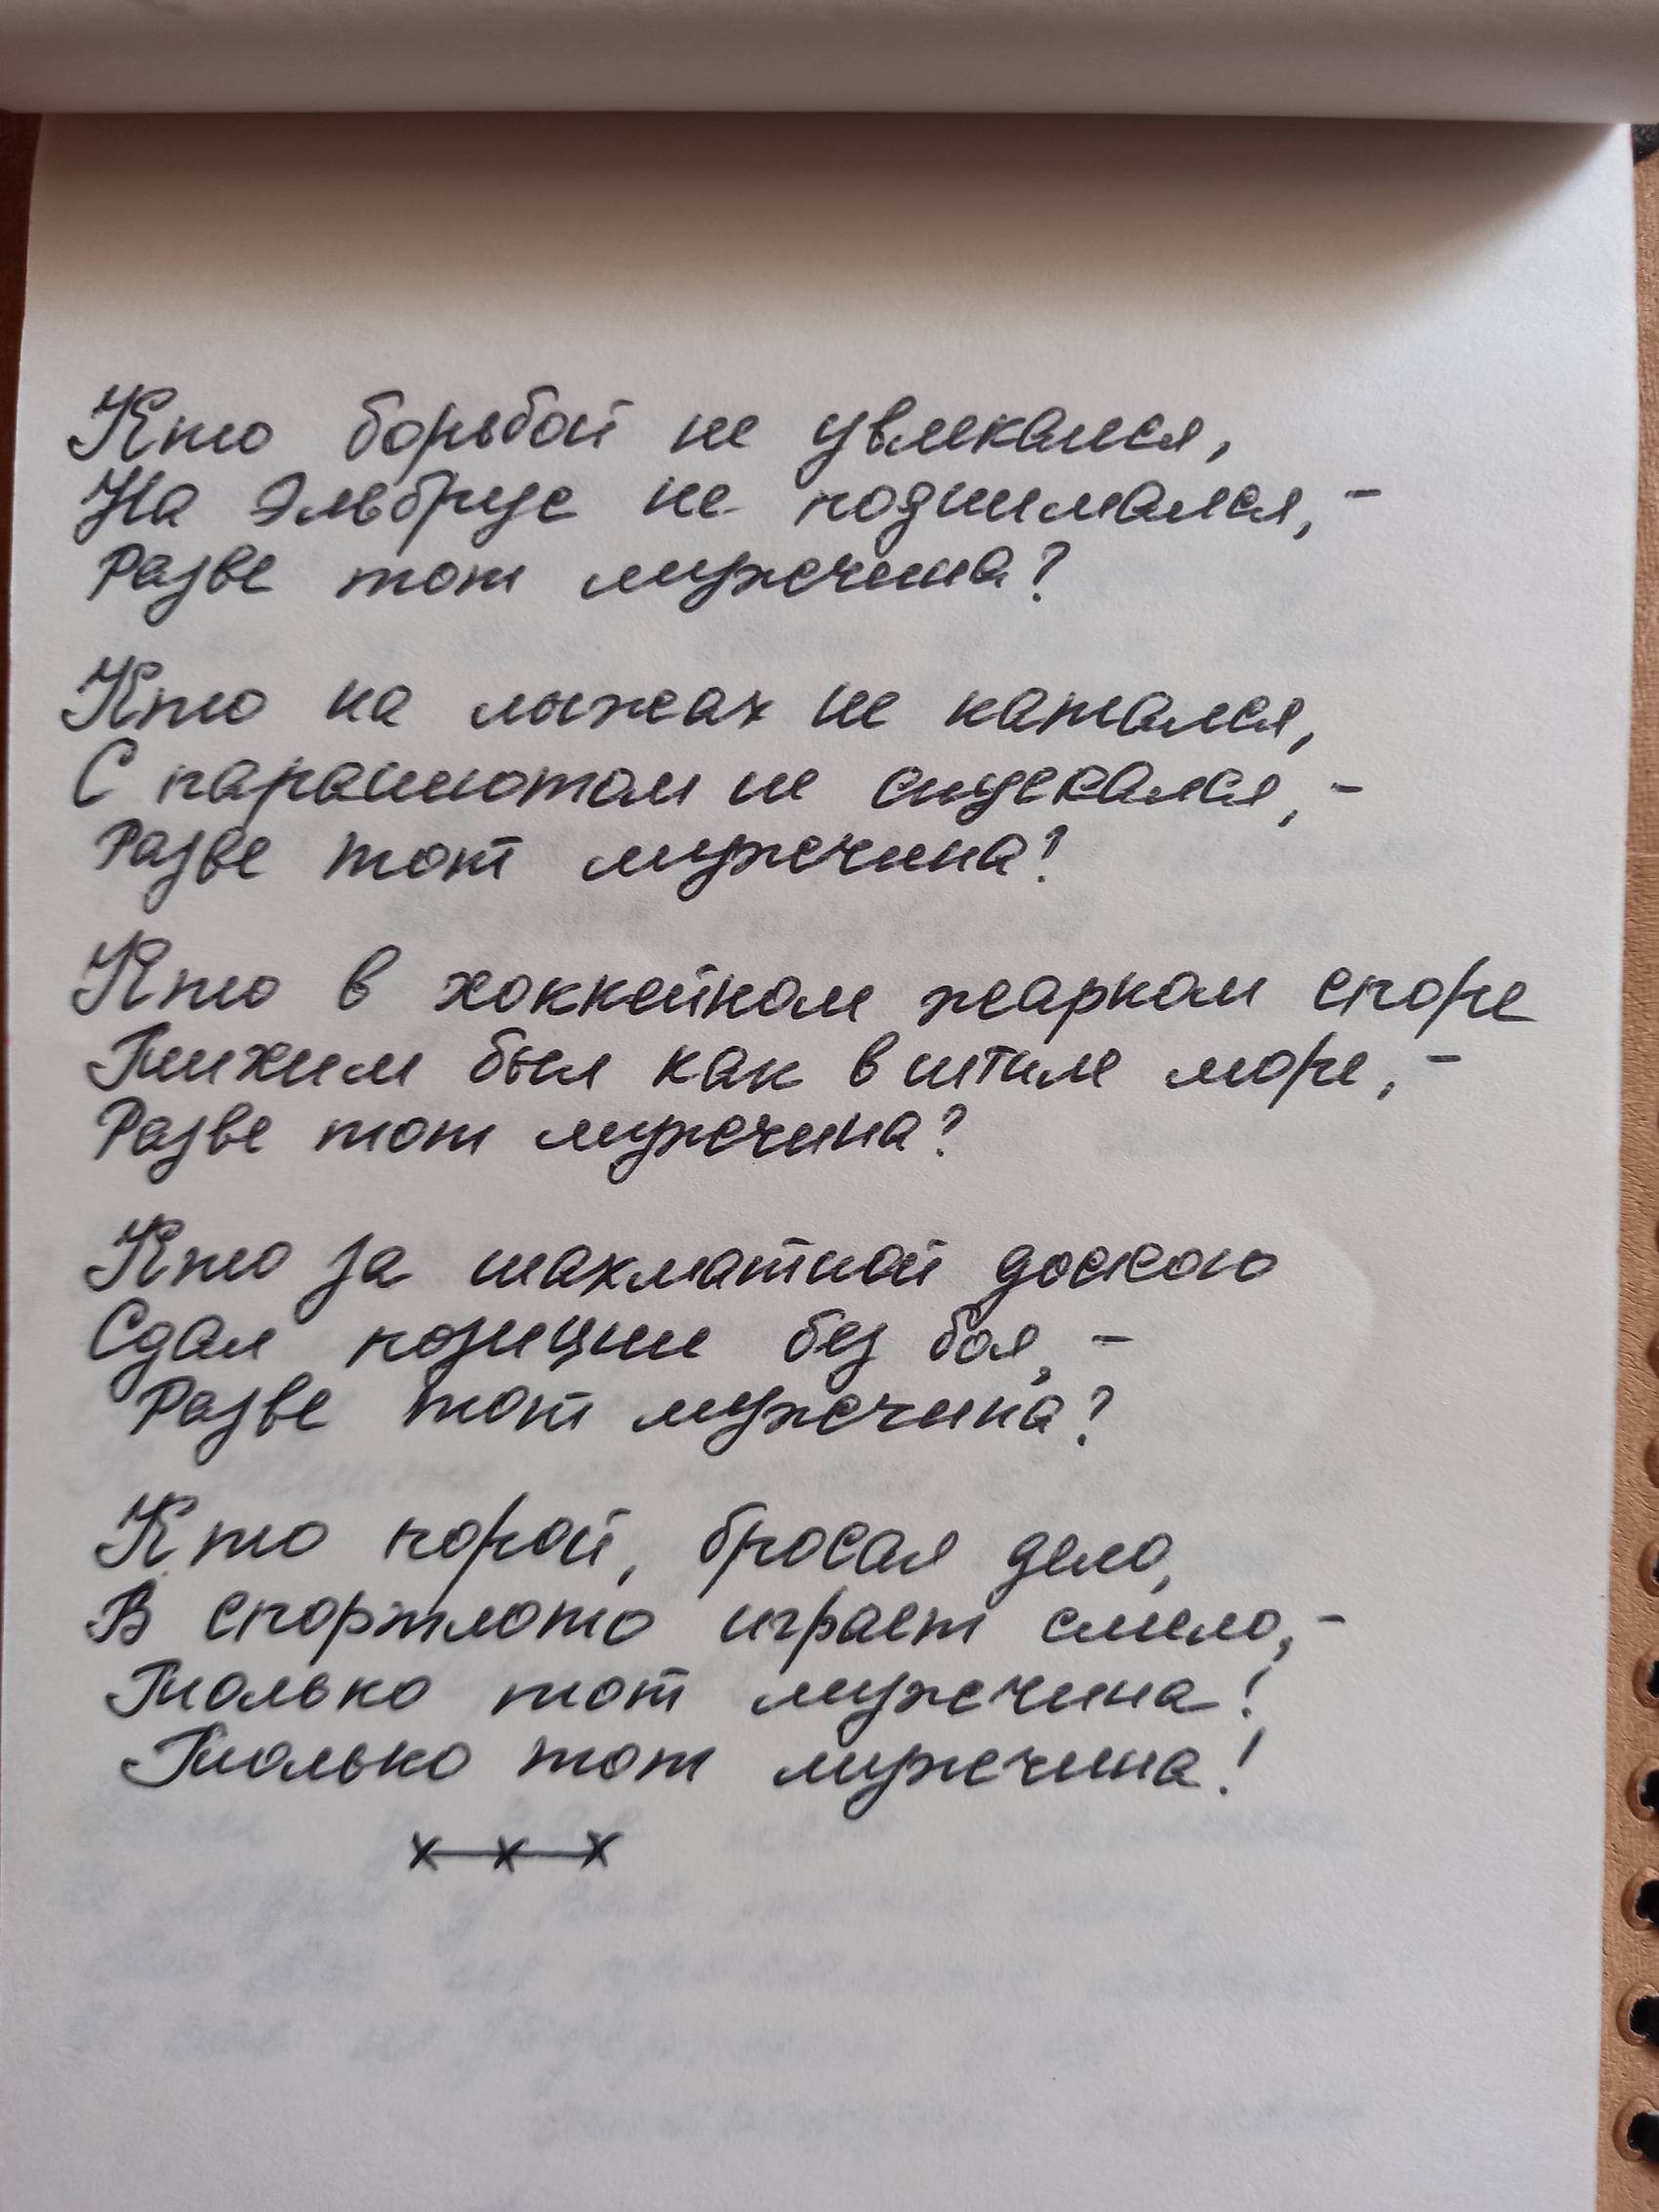 Кто борьбой не увлекался,
На Эльбрус не поднимался,-
Разве тот мужчина?
Кто на лыжах не катался,
С парашютом не спускался,-
Разве тот мужчина?
Кто в хоккейном жарком споре
Тихим был как в штиле море,-
Разве тот мужчина?
Кто за шахматной доскою
Сдал позиции без боя,-
Разве тот мужчина?
Кто порой, бросая дело,
В спортлото играет смело,-
Только тот мужчина!
Только тот мужчина!
х—х—х